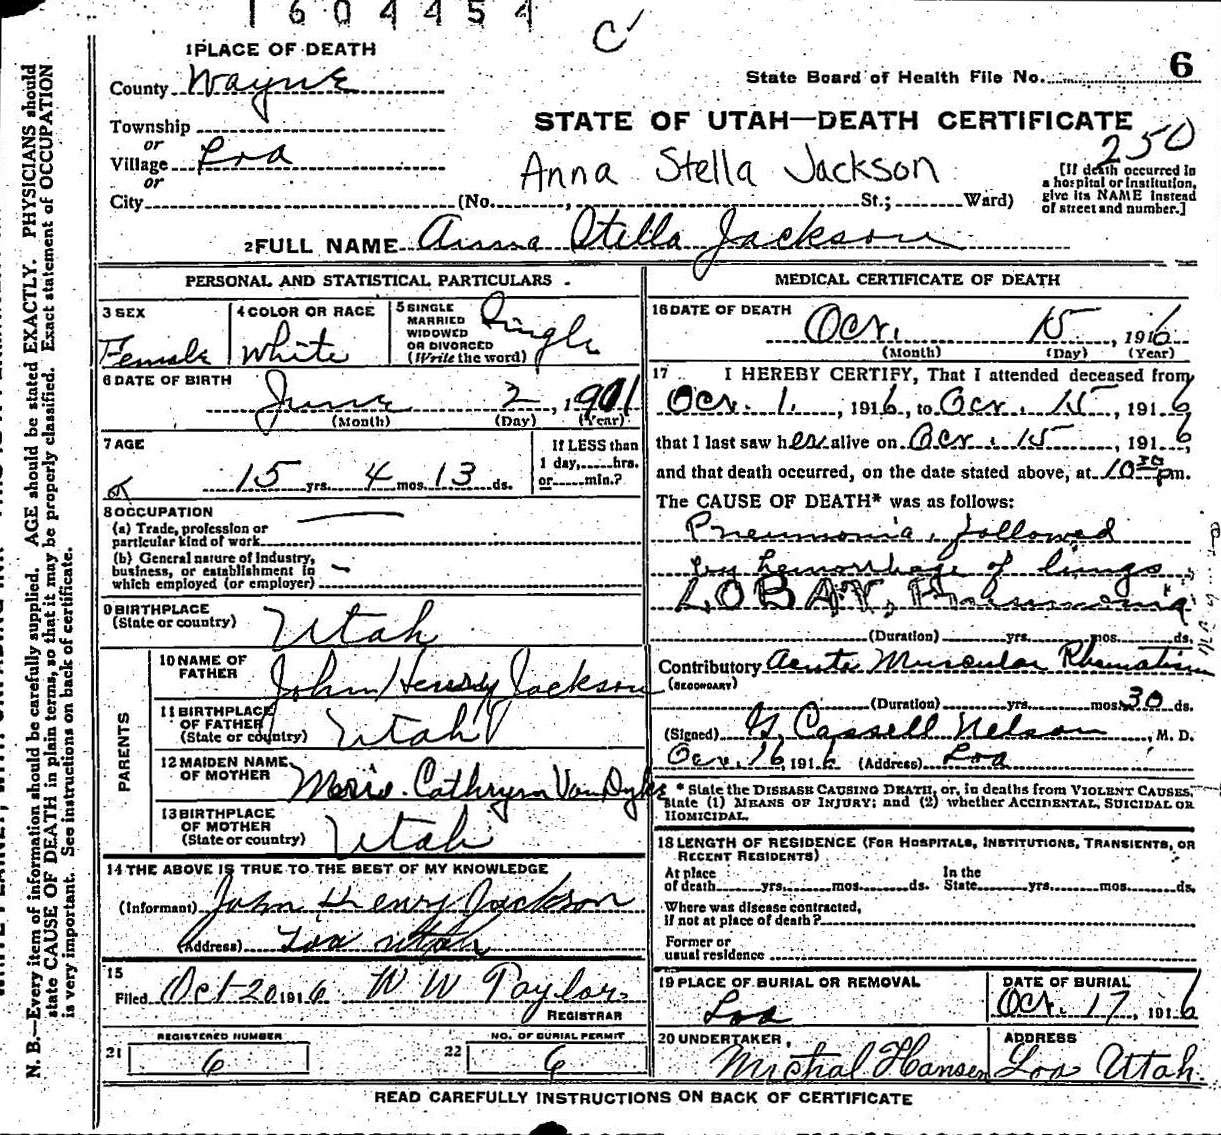 1604454
C
1 PLACE OF DEATH
County Wayne
State Board of Health File No. 6
Township
or
Village Loa
or
City (No. , St.; Ward)
STATE OF UTAH—DEATH CERTIFICATE
250
Anna Stella Jackson
[If death occurred in a hospital or institution, give its NAME instead of street and number.]
2 FULL NAME Anna Stella Jackson
PERSONAL AND STATISTICAL PARTICULARS
3 SEX Female
4 COLOR OR RACE White
5 SINGLE MARRIED WIDOWED OR DIVORCED (Write the word) Single
6 DATE OF BIRTH June 2, 1901
(Month) (Day) (Year)
7 AGE 15 yrs. 4 mos. 13 ds.
If LESS than 1 day, hrs. or min.?
8 OCCUPATION
(a) Trade, profession or particular kind of work
(b) General nature of industry, business, or establishment in which employed (or employer)
9 BIRTHPLACE (State or country) Utah
PARENTS
10 NAME OF FATHER John Henry Jackson
11 BIRTHPLACE OF FATHER (State or country) Utah
12 MAIDEN NAME OF MOTHER Cathryn VanDyke
13 BIRTHPLACE OF MOTHER (State or country) Utah
14 THE ABOVE IS TRUE TO THE BEST OF MY KNOWLEDGE
(Informant) John Henry Jackson
(Address) Loa Utah
15
Filed Oct 20 1916 W W Taylor
REGISTRAR
21 REGISTERED NUMBER 6
22 NO. OF BURIAL PERMIT 6
MEDICAL CERTIFICATE OF DEATH
16 DATE OF DEATH Oct. 15, 1916
(Month) (Day) (Year)
17 I HEREBY CERTIFY, That I attended deceased from
Oct. 1, 1916, to Oct. 15, 1916
that I last saw her alive on Oct. 15, 1916
and that death occurred, on the date stated above, at 10 30 pm.
The CAUSE OF DEATH* was as follows:
Pneumonia, followed
by hemorrhage of lungs
LOBAR, Pneumonia
(Duration) yrs. mos. ds.
Contributory (SECONDARY) Acute Muscular Rheumatism
(Duration) yrs. mos. 30 ds.
(Signed) G. Cassell Nelson, M. D.
Oct. 16, 1916 (Address) Loa
* State the DISEASE CAUSING DEATH, or, in deaths from VIOLENT CAUSES, state (1) MEANS OF INJURY; and (2) whether ACCIDENTAL, SUICIDAL OR HOMICIDAL.
18 LENGTH OF RESIDENCE (FOR HOSPITALS, INSTITUTIONS, TRANSIENTS, OR RECENT RESIDENTS)
At place of death yrs. mos. ds. In the State yrs. mos. ds.
Where was disease contracted, if not at place of death?
Former or usual residence
19 PLACE OF BURIAL OR REMOVAL Loa
DATE OF BURIAL Oct. 17, 1916
20 UNDERTAKER Michal Hansen
ADDRESS Loa Utah.
READ CAREFULLY INSTRUCTIONS ON BACK OF CERTIFICATE
N. B.—Every item of information should be carefully supplied. AGE should be stated EXACTLY. PHYSICIANS should
state CAUSE OF DEATH in plain terms, so that it may be properly classified. Exact statement of OCCUPATION
is very important. See instructions on back of certificate.